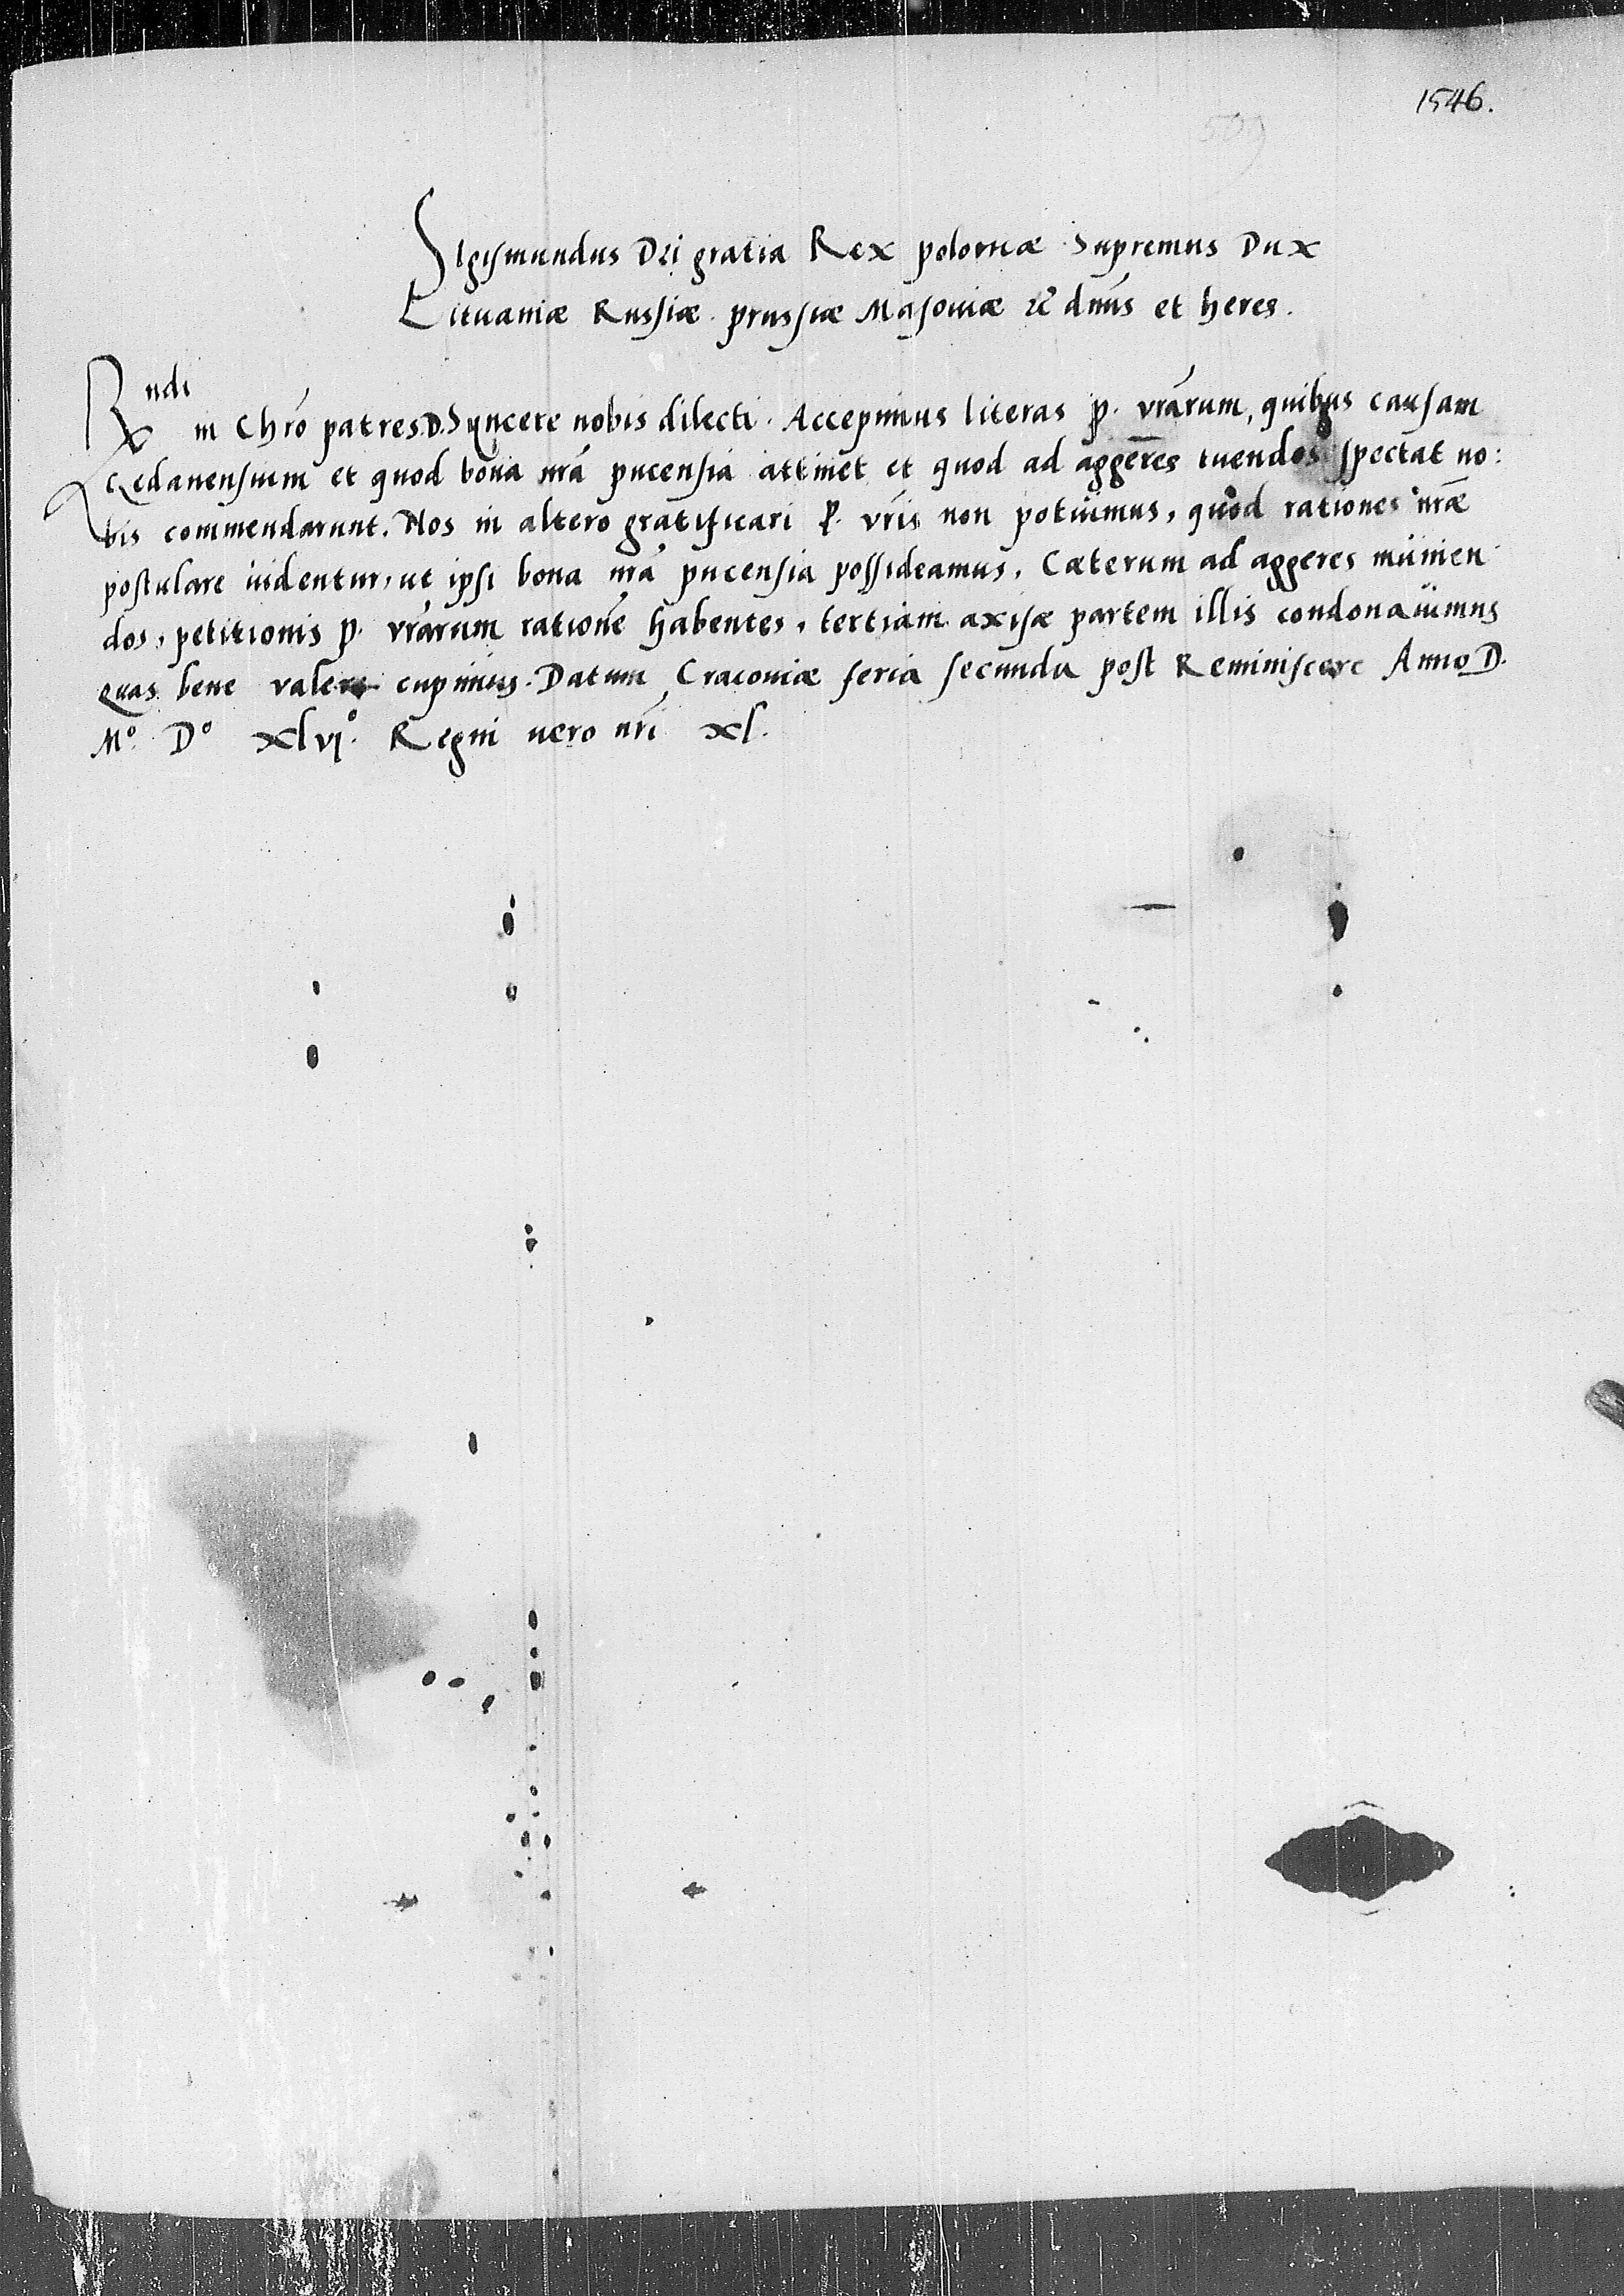 1546.
509
Sigismundus Dei gratia Rex poloniæ Supremus Dux
Lituaniæ Russiæ prussiæ Masoviæ &c̃ dñus et heres.
Rndi in Chrõ patres D. Syncere nobis dilecti. Accepimus literas p. vrãrum, quibus causam
Gedanensium et quod bona nrã pucensia attinet et quod ad aggeres tuendos spectat no:
bis commendarunt. Nos in altero gratificari p. vrĩs non potuimus, quod rationes nrãe
postulare uidentur, ut ipsi bona nrã pucensia possideamus. Cæterum ad aggeres munien
dos, petitionis p. vrãrum rationẽ habentes, tertiam axisæ partem illis condonauimus
quas bene valere cupimus. Datum Cracoviæ feria secunda post Reminiscere Anno D.
Mº. Dº xlvjº. Regni uero nrĩ xl.